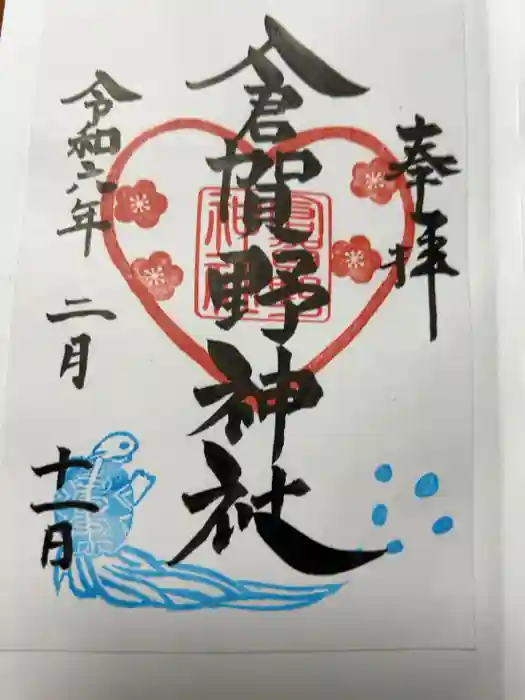 奉拝
倉賀野神社
令和六年
二月
十一日